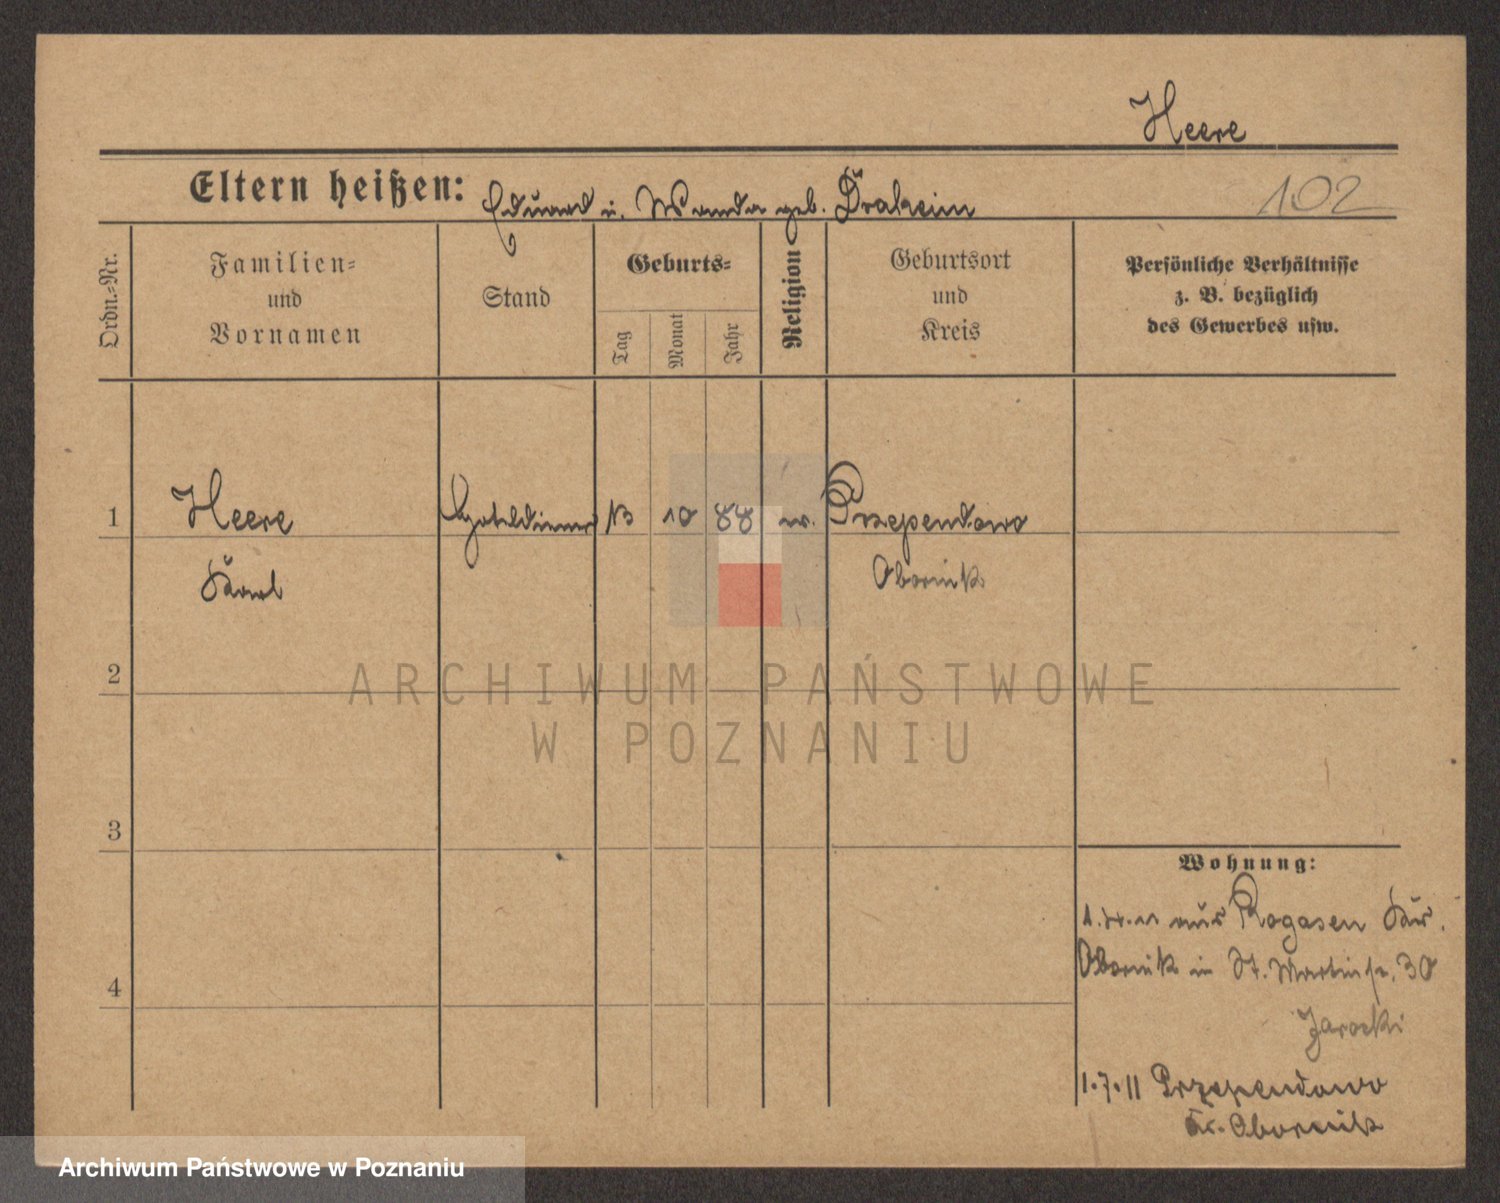 Heere
Eltern heißen: Eduard u. Wanda geb. Draheim
102
Ordn.-Nr.
Familien-
und
Vornamen
Stand
Geburts-
Tag
Monat
Jahr
Religion
Geburtsort
und
Kreis
Persönliche Verhältnisse
z. B. bezüglich
des Gewerbes usw.
1 Heere 10 88 ev. Przependowo
Karl Obornik
2
ARCHIWUM PAŃSTWOWE
W POZNANIU
3
Wohnung:
aus Rogasen Kr.
4
Obornik in St. Martinstr. 30
Jarocki
1.7.11 Przependowo
Kr. Obornik
Archiwum Państwowe w Poznaniu